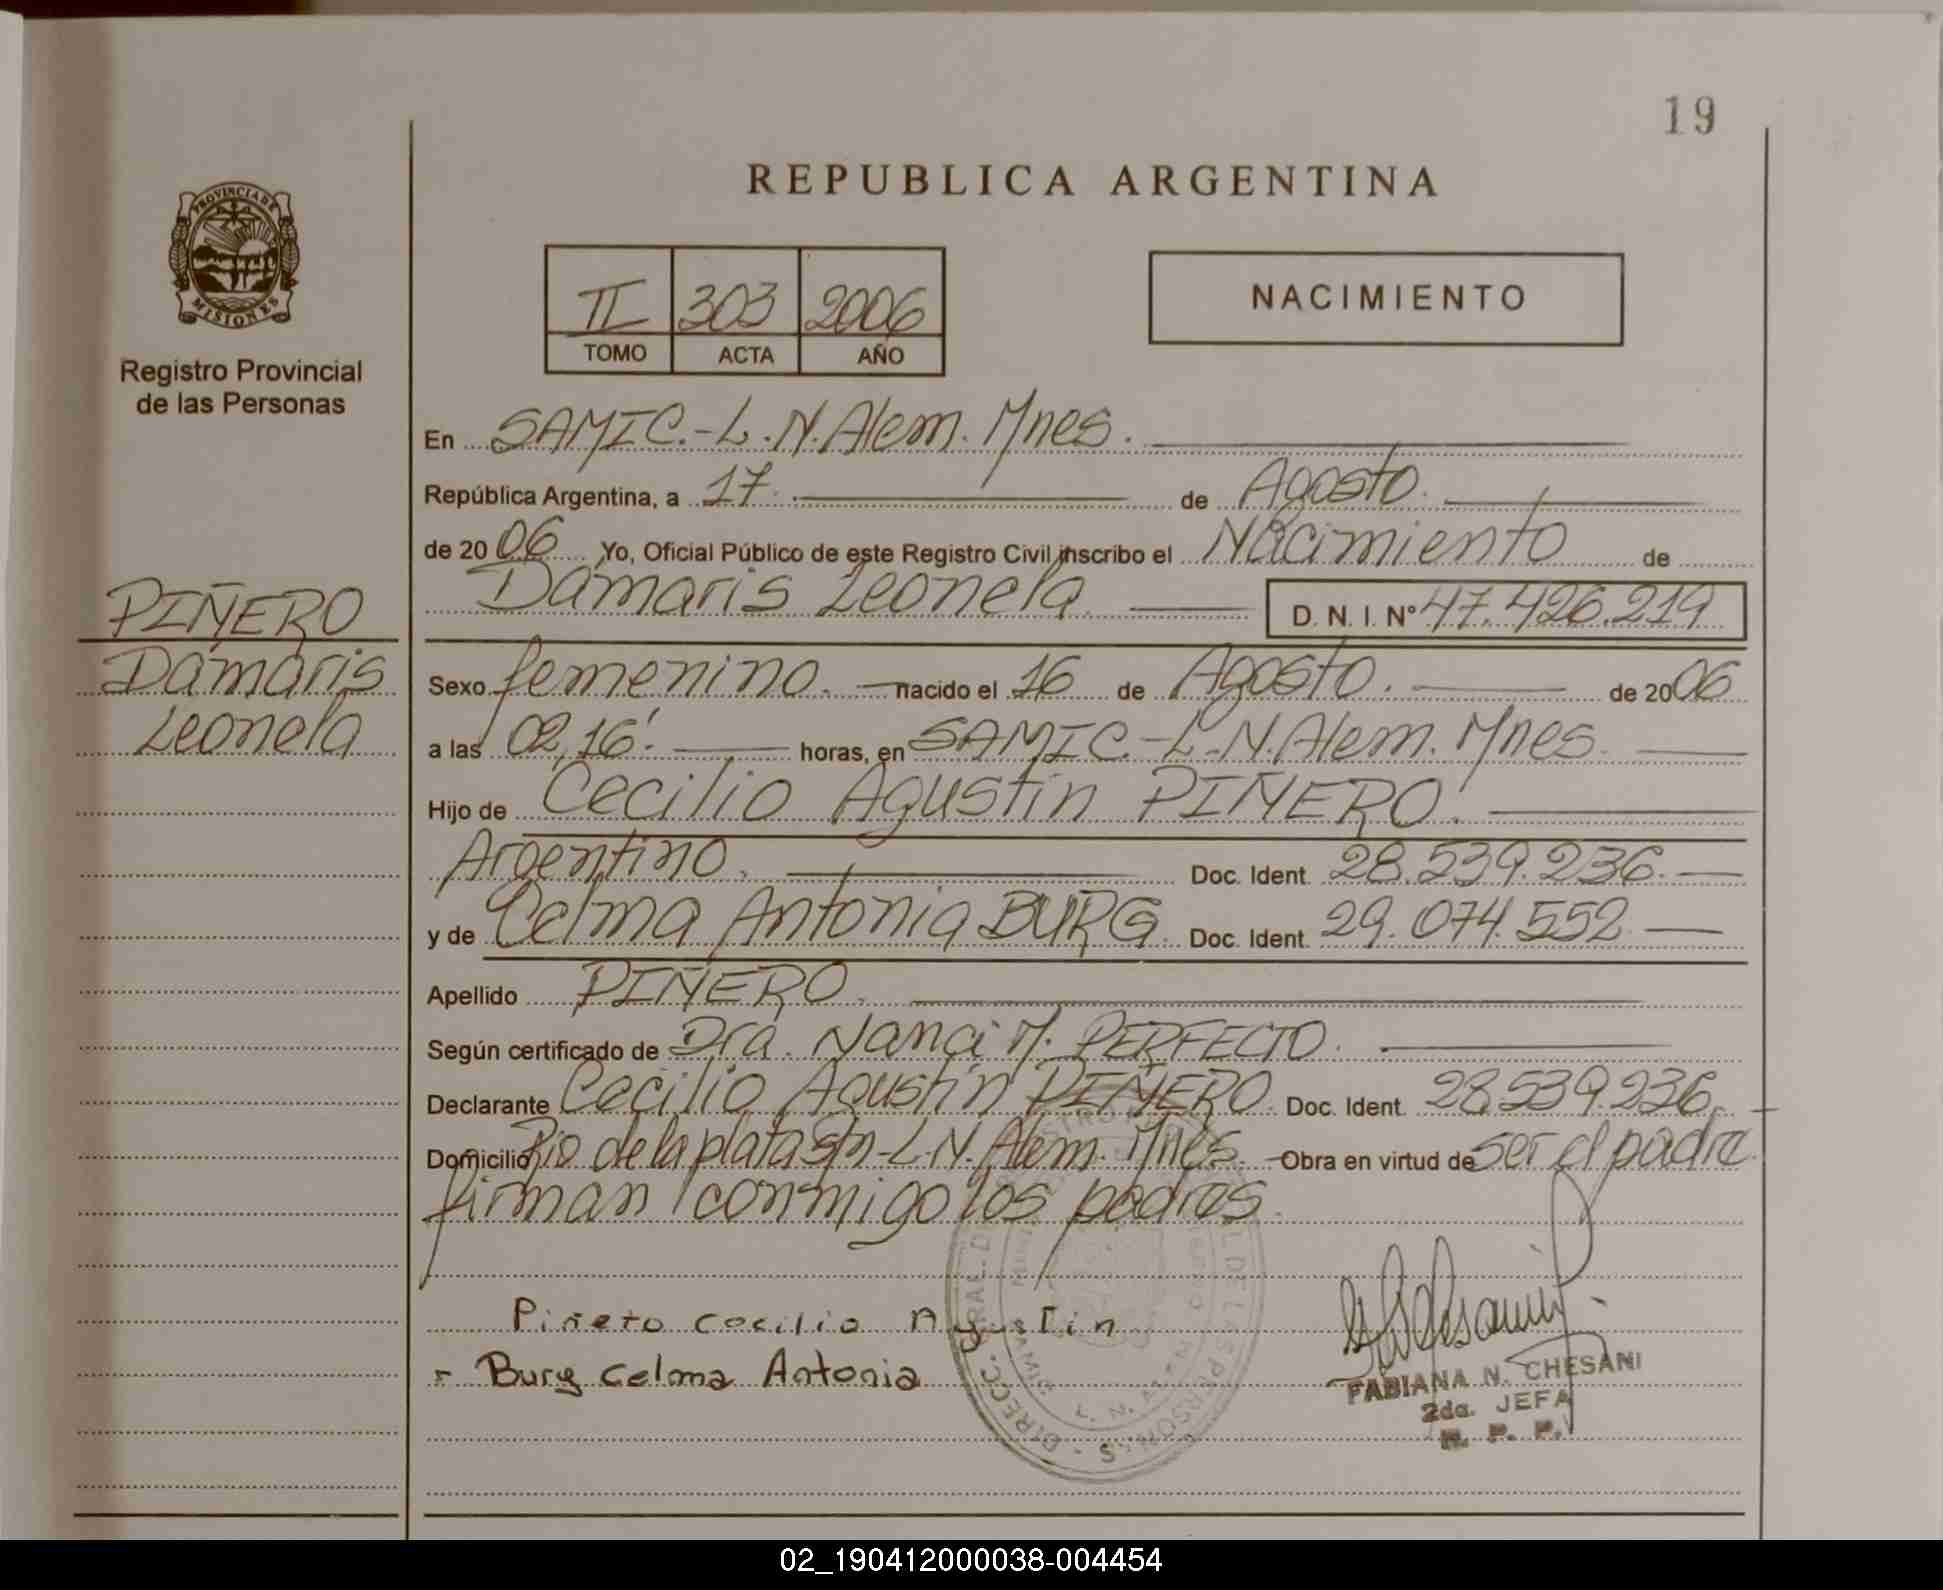 19
REPUBLICA ARGENTINA
PROVINCIA DE
MISIONES
Registro Provincial
de las Personas
II 303 2006
TOMO ACTA AÑO
NACIMIENTO
En SAMIC.-L.N.Alem. Mnes.
República Argentina, a 17. de Agosto.
de 2006 Yo, Oficial Público de este Registro Civil inscribo el Nacimiento de
Damaris Leonela. D. N. I. Nº 47.426.219
PIÑERO
Damaris
Leonela
Sexo femenino. nacido el 16 de Agosto. de 2006
a las 02,16'. horas, en SAMIC.-L.N.Alem. Mnes.
Hijo de Cecilio Agustín PIÑERO.
Argentino. Doc. Ident. 28.539.236.
y de Celma Antonia BURG. Doc. Ident. 29.074.552
Apellido PIÑERO.
Según certificado de Dra. Nanci M. PERFECTO.
Declarante Cecilio Agustín PIÑERO. Doc. Ident. 28.539.236.
Domicilio Rio de la plata s/n-L.N. Alem. Mnes. Obra en virtud de ser el padre.
firman conmigo los padres.
Piñero Cecilio Agustin
Burg Celma Antonia
FABIANA N. CHESANI
2da. JEFA
R. P. P.
02_190412000038-004454